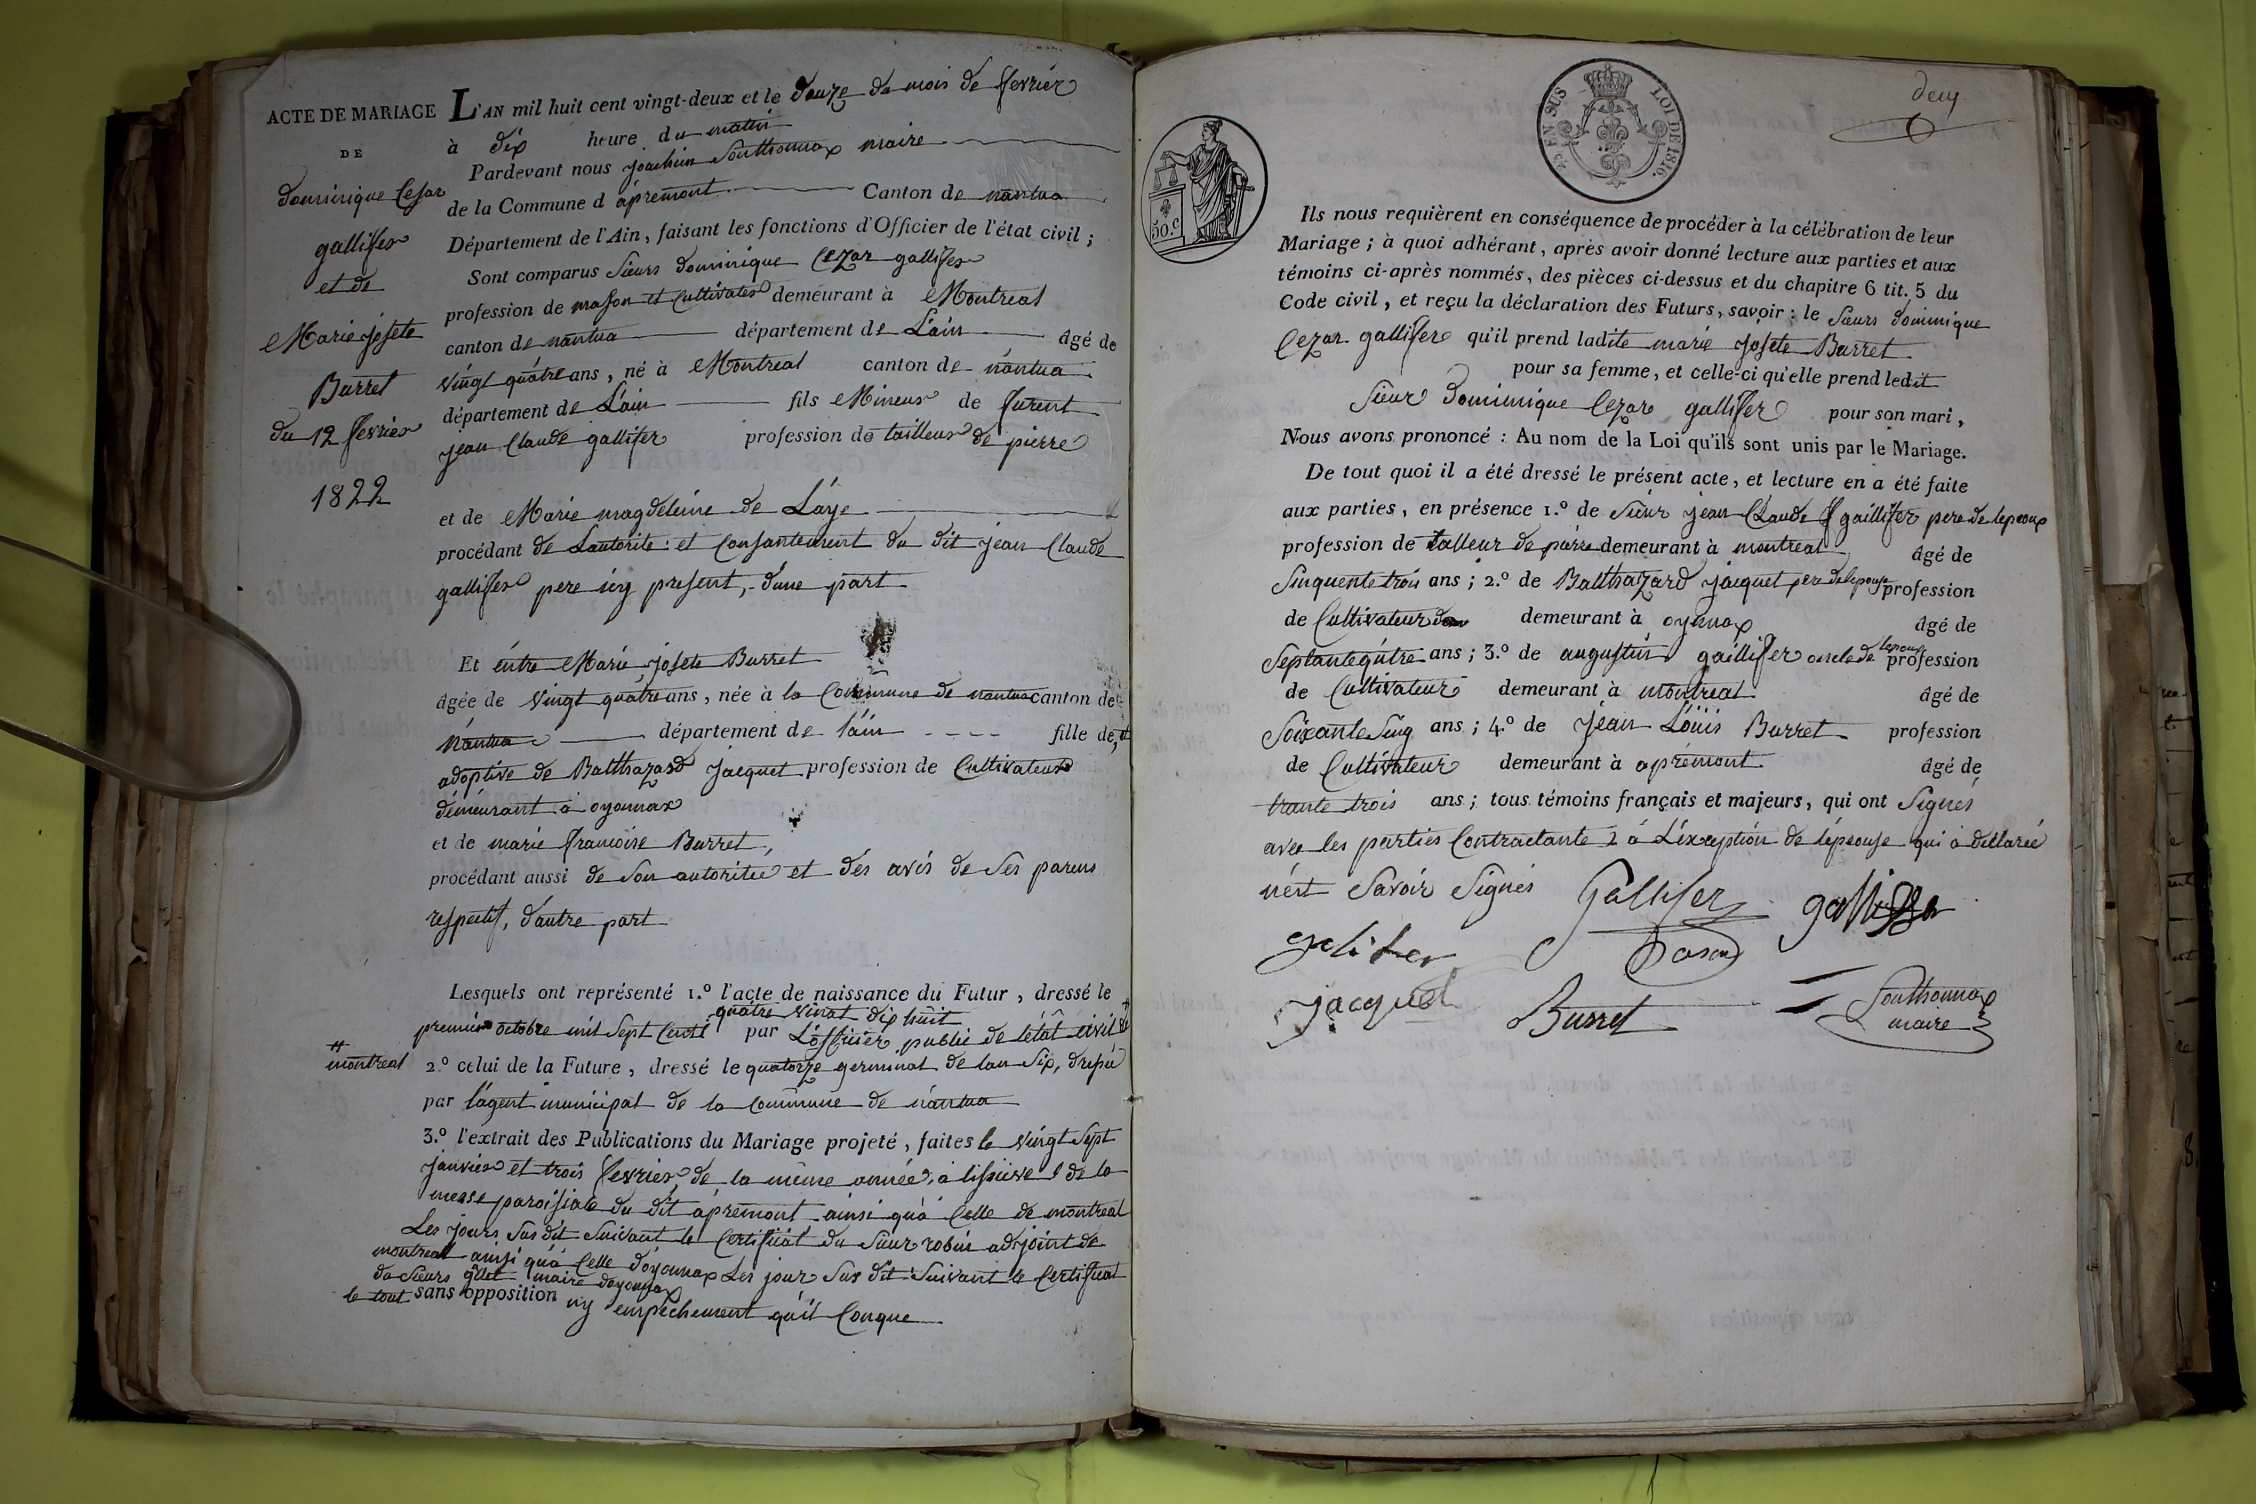 ACTE DE MARIAGE
DE
dominique Cesar
galliffer
et de
Marie josete
Burret
du 12 fevrier
1822
L'AN mil huit cent vingt-deux et le douze du mois de fevrier
à dix heure du matin
Pardevant nous joachim Southonnax maire
de la Commune d apremont Canton de nantua
Département de l'Ain, faisant les fonctions d'Officier de l'état civil ;
Sont comparus Sieurs dominique Cezar galliffer
profession de masson et Cultivateur demeurant à Montreal
canton de nantua département de L'ain âgé de
vingt quatre ans, né à Montreal canton de nantua
département de L'ain fils Mineur de furent
jean Claude galliffer profession de tailleur de pierre
et de Marie magdeleine de Laye
procédant de Lautorite et Consantement du dit jean Claude
galliffer pere icy present, d'une part
Et entre Marie josete Burret
âgée de vingt quatre ans, née à la Commune de nantua canton de
nantua département de l'ain fille de
adoptive de Balthazard jacquet profession de Cultivateur
demeurant à oyonnax
et de marie francoise Burret,
procédant aussi de son autoritée et des avis de ses parens
respectif, d'autre part
Lesquels ont représenté 1.º l'acte de naissance du Futur, dressé le
premier octobre mil Sept Cent quatre vingt dix huit par L'officier public de létat civil de
montreal
2.º celui de la Future, dressé le quatorze germinal de lan six,
par lágent municipal de la commune de nantua
3.º l'extrait des Publications du Mariage projeté, faites le vingt Sept
janvier et trois fevrier de la même année, a lissüe de la
messe paroissiale du dit apremont ainsi quà Celle de montreal
Les jours Sus dit Suivant le Certificat du Sieur robin adjoint de
montreal ainsi quà Celle d'oyonnax Les jour Sus dit Suivant le Certificat
du Sieurs maire doyonnax
le tout sans opposition ny empêchement quil Conque
50.C
EN SUS
LOI DE 1816.
deux
Ils nous requièrent en conséquence de procéder à la célébration de leur
Mariage ; à quoi adhérant, après avoir donné lecture aux parties et aux
témoins ci-après nommés, des pièces ci-dessus et du chapitre 6 tit. 5 du
Code civil, et reçu la déclaration des Futurs, savoir : le Sieurs dominique
Cezar galliffer qu'il prend ladite marie josete Burret
pour sa femme, et celle-ci qu'elle prend ledit
Sieur Dominique Cezar galliffer pour son mari,
Nous avons prononcé : Au nom de la Loi qu'ils sont unis par le Mariage.
De tout quoi il a été dressé le présent acte, et lecture en a été faite
aux parties, en présence 1.º de Sieur jean Claude gailliffer pere de lepeoux
profession de talleur de pierre demeurant à montreal âgé de
Sinquente trois ans ; 2.º de Balthazard jacquet pere de lepouse profession
de Cultivateur demeurant à oyonnax âgé de
Septante quatre ans ; 3.º de augustin gailliffer oncle de lepoux profession
de Cultivateur demeurant à montreal âgé de
Soixante Sinq ans ; 4.º de jean Loüis Burret profession
de Cultivateur demeurant à apremont âgé de
trante trois ans ; tous témoins français et majeurs, qui ont Signés
avec les parties Contractante à L'exception de lépeouse qui à déclarée
nést Savoir Signés
Gallifer
galliffer
galifer
jacquet
Burret
Southonnax
maire